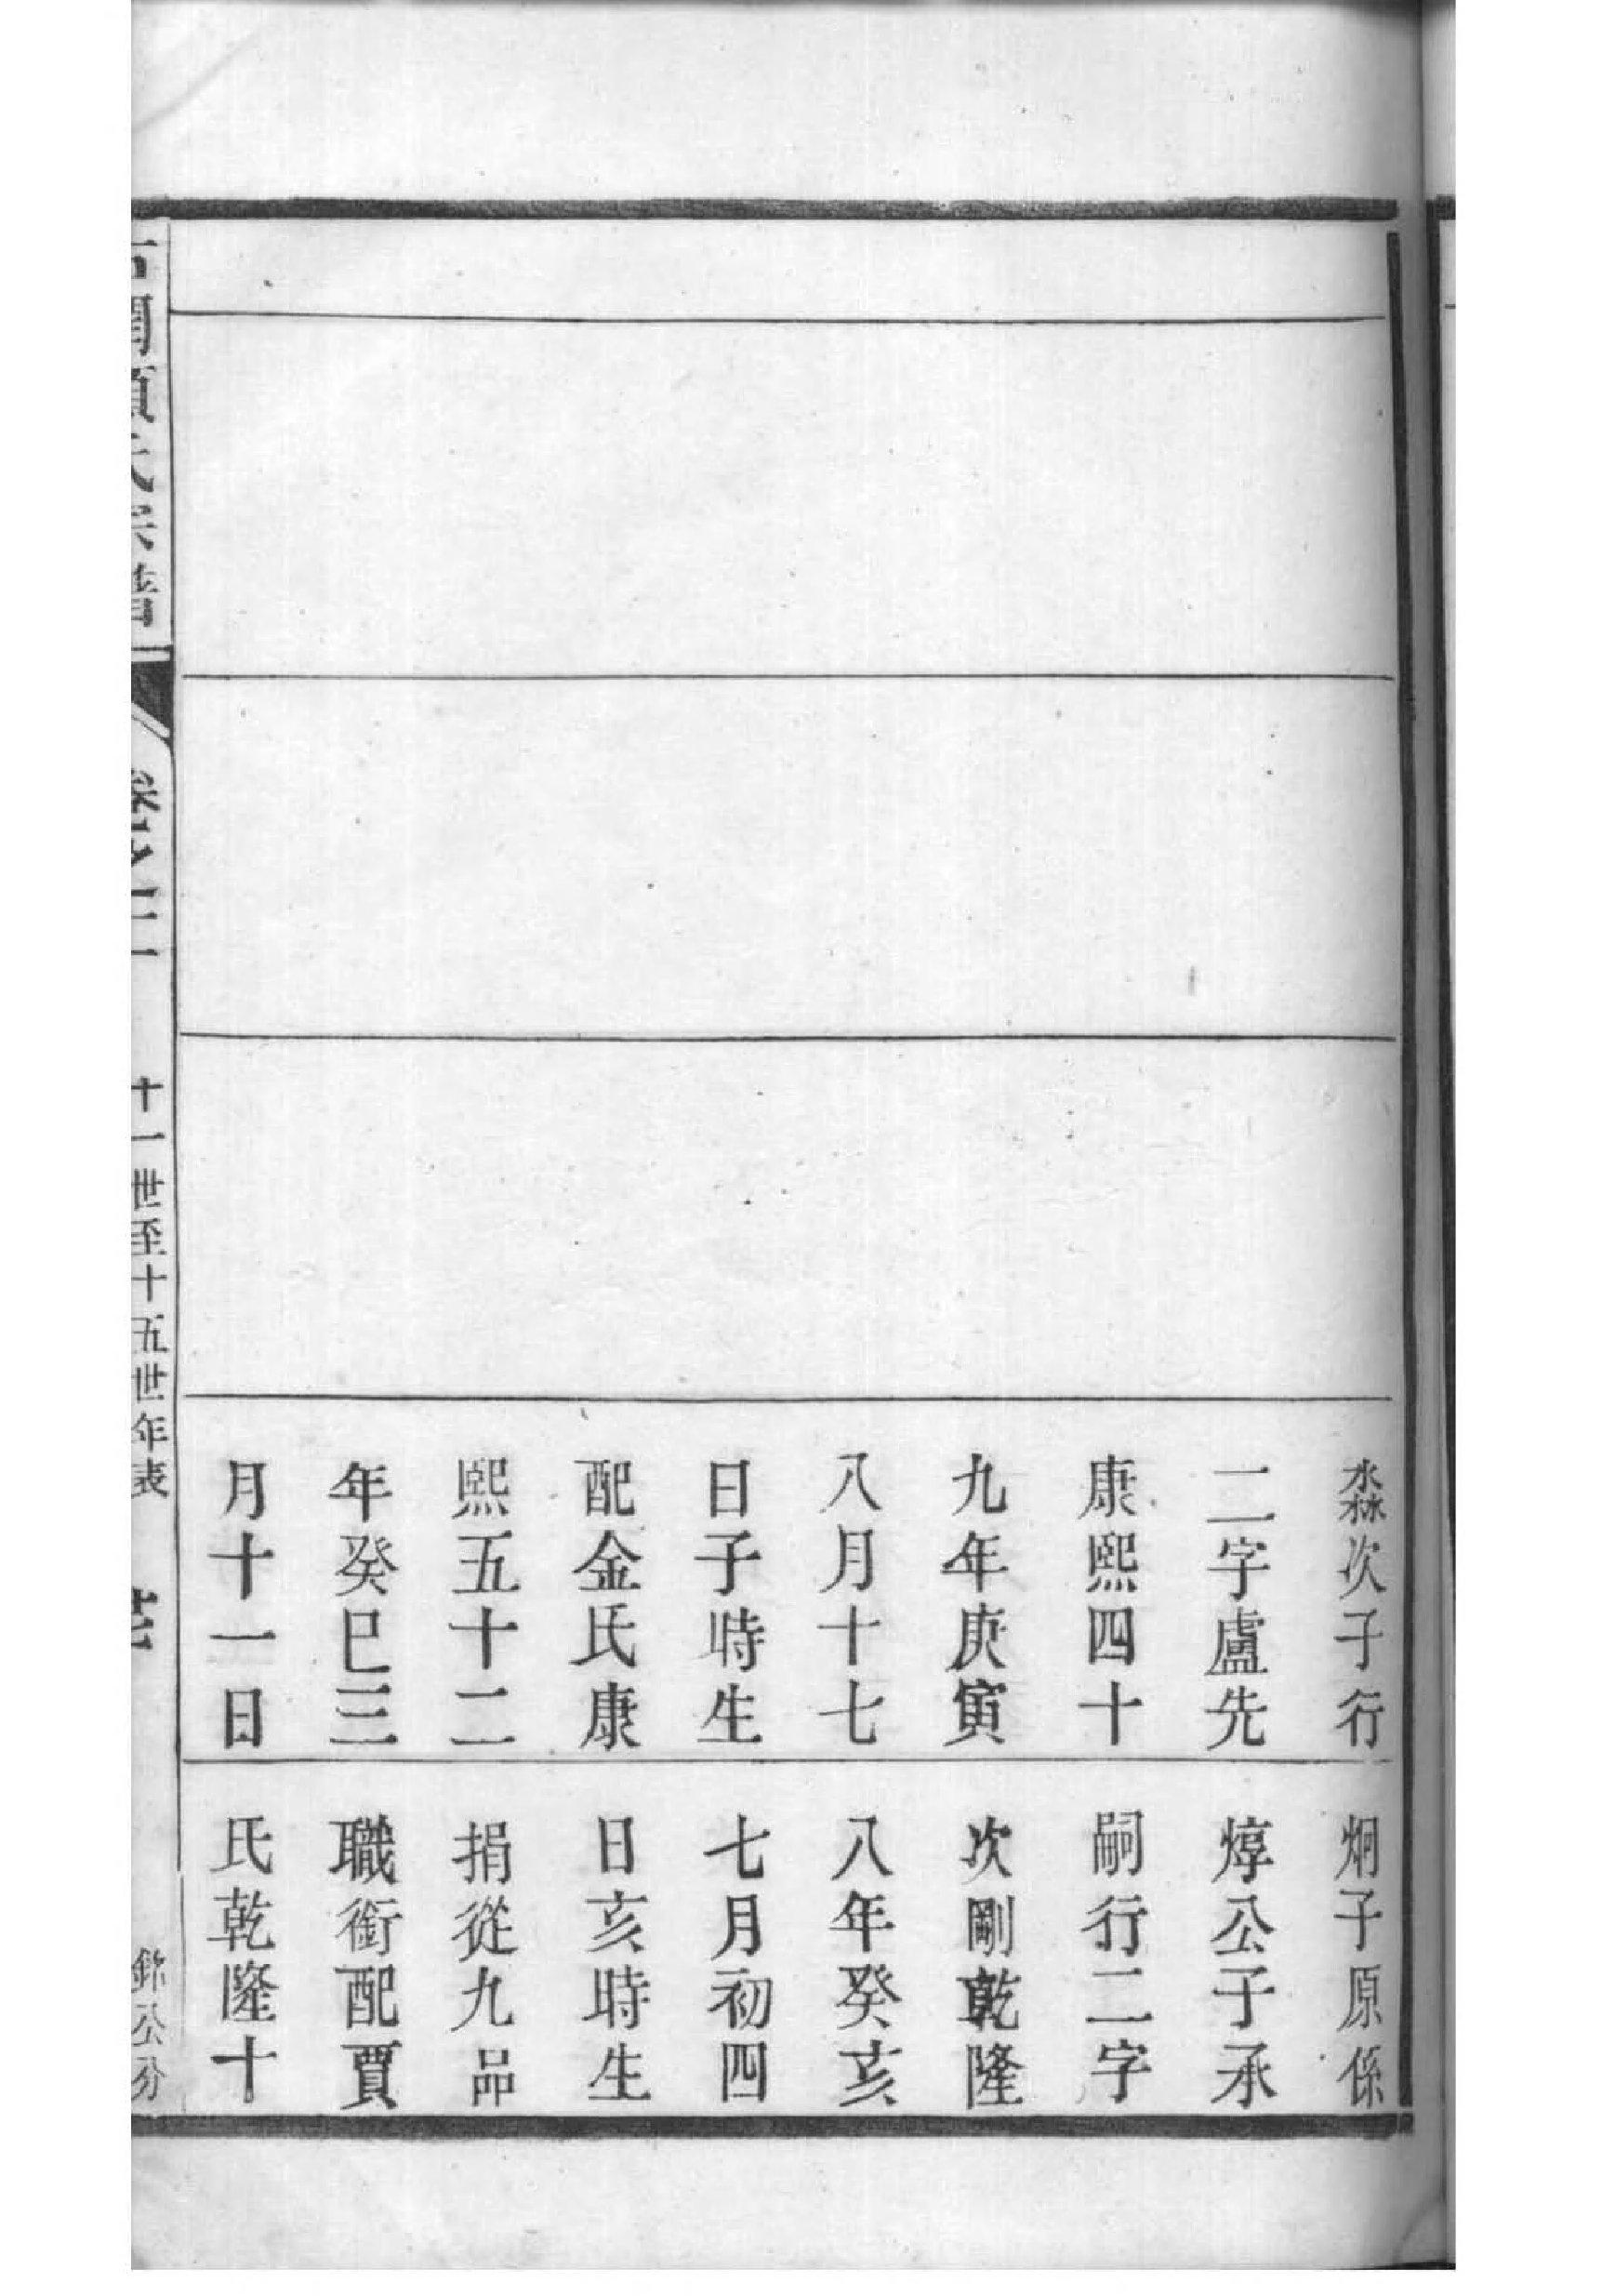 淼次子行
二字盧先
康熙四十
九年庚寅
八月十七
日子時生
配金氏康
熙五十二
年癸巳三
月十一日
炯子原係
焞公子承
嗣行二字
次剛乾隆
八年癸亥
七月初四
日亥時生
捐從九品
職銜配賈
氏乾隆十
氏宗譜
卷之三
十一世至十五世年表
公分